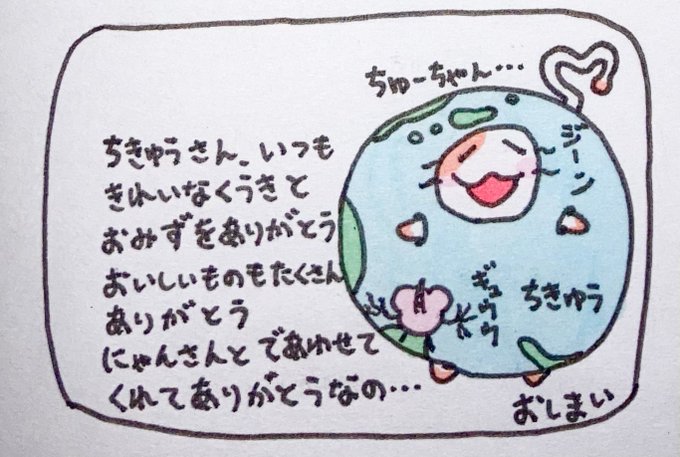 ちゅーちゃん…
ジーン
ちきゅうさん、いつも
きれいなくうきと
おみずをありがとう
おいしいものもたくさん
ありがとう
にゃんさんとであわせて
くれてありがとうなの…
ギュウウ
ちきゅう
おしまい